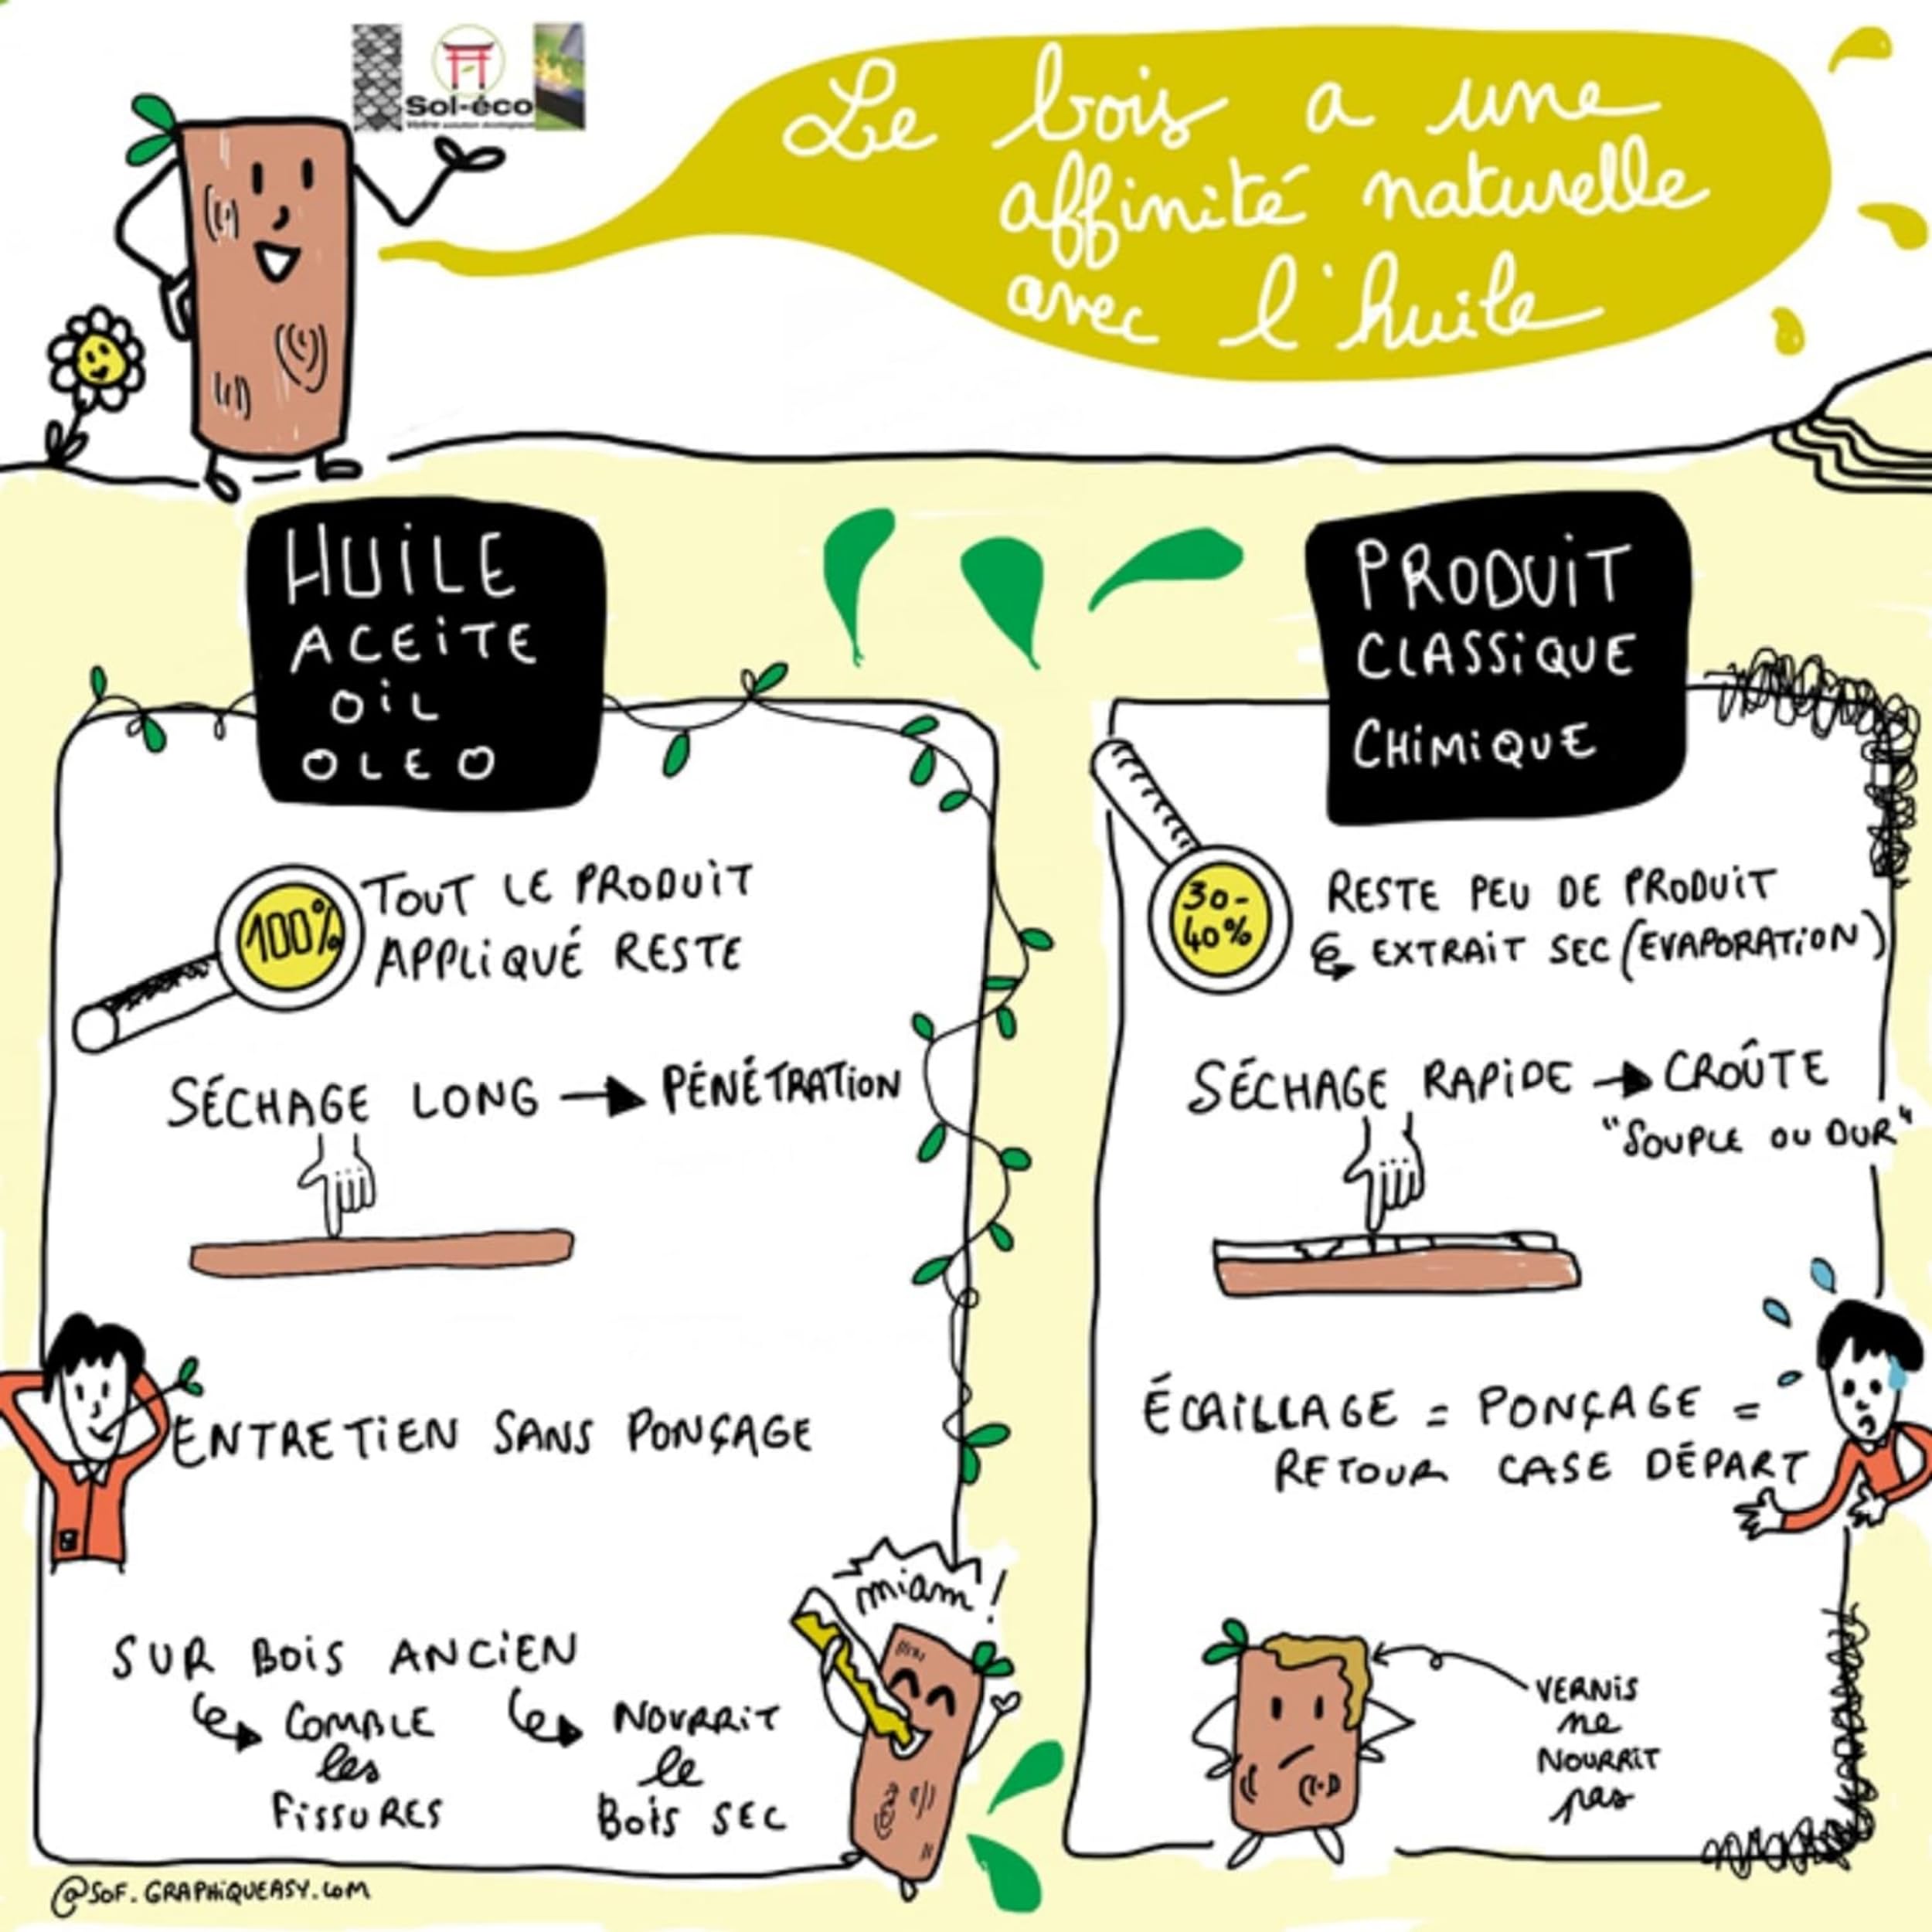 Sol-éco
Votre solution écologique
Le bois a une
affinité naturelle
avec l'huile
HUiLE
ACEiTE
OiL
OLEO
100%
TOUT LE PRODUiT
APPLiQUÉ RESTE
SÉCHAGE LONG → PÉNÉTRATiON
ENTRETiEN SANS PONÇAGE
SUR BOiS ANCiEN
COMBLE
les
FiSSURES
NOURRiT
le
BOiS SEC
miam!
PRODUiT
CLASSiQUE
CHiMiQUE
30-
40%
RESTE PEU DE PRODUiT
EXTRAiT SEC (EVAPORATiON)
SÉCHAGE RAPiDE → CROÛTE
"SOUPLE OU DUR"
ÉCAiLLAGE = PONÇAGE =
RETOUR CASE DÉPART
VERNiS
ne
NOURRiT
pas
@SOF.GRAPHiQUEASY.COM